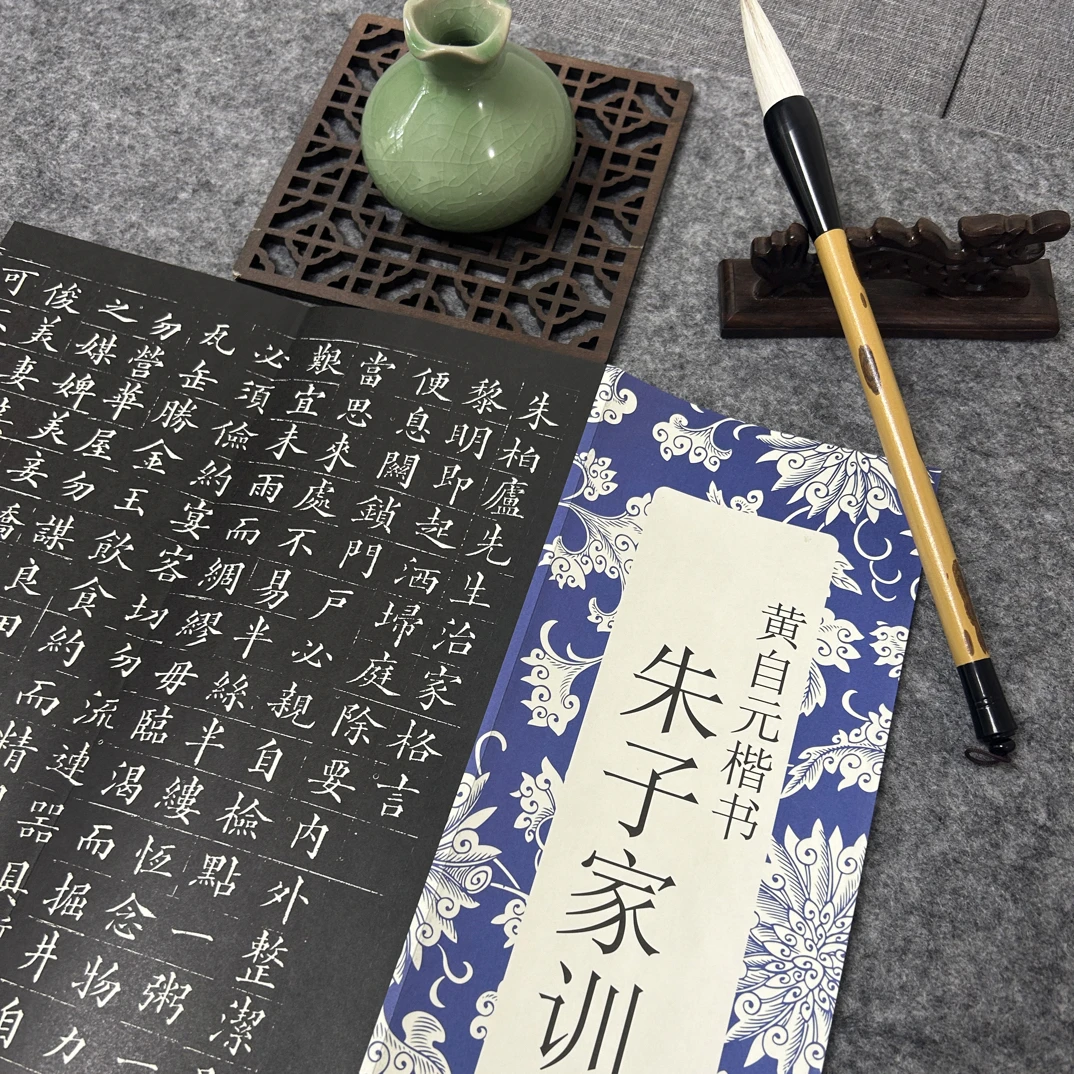 黄自元楷书
朱子家训
朱柏廬先生治家格言
黎明即起洒埽庭除要内外整潔
便息關鎖門户必親自檢點一粥一
當思來處不易半絲半縷恆念物力
艱宜未雨而綢繆毋臨渴而掘井自
必須儉約宴客切勿流連器具
瓦缶勝金玉飲食約而精
勿營華屋勿謀良田
之媒婢美妾嬌
俊美妻
可